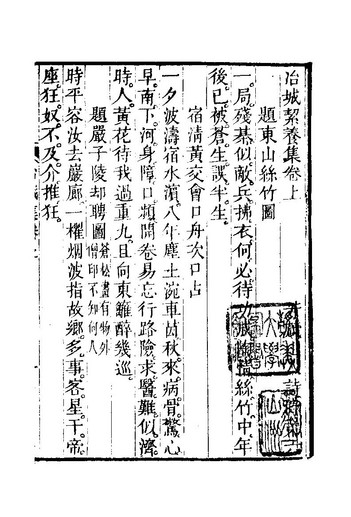 冶城絜養集卷上
題東山絲竹圖
一局殘棊似敵兵拂衣何必待絲竹中年
後已被蒼生誤半生
宿清黃交會口舟次口占
一夕波濤宿水濱八年塵土涴車茵秋來病骨驚心
早南下河身障口頻開卷易忘行路險求醫難似濟
時人黃花待我過重九且向東籬醉幾巡
題嚴子陵却聘圖蒼松畵有物外
僧印不知何人
時平容汝去巖廊一櫂烟波指故鄉多事客星干帝
座狂奴不及介推狂